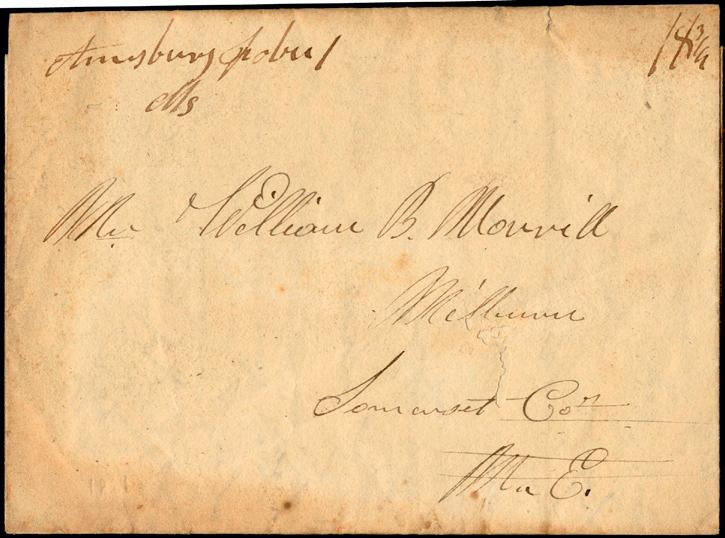 Amesbury
Ms
18 3/4
Mr William B. Morrill
Milburn
Somerset Co
Ma E.